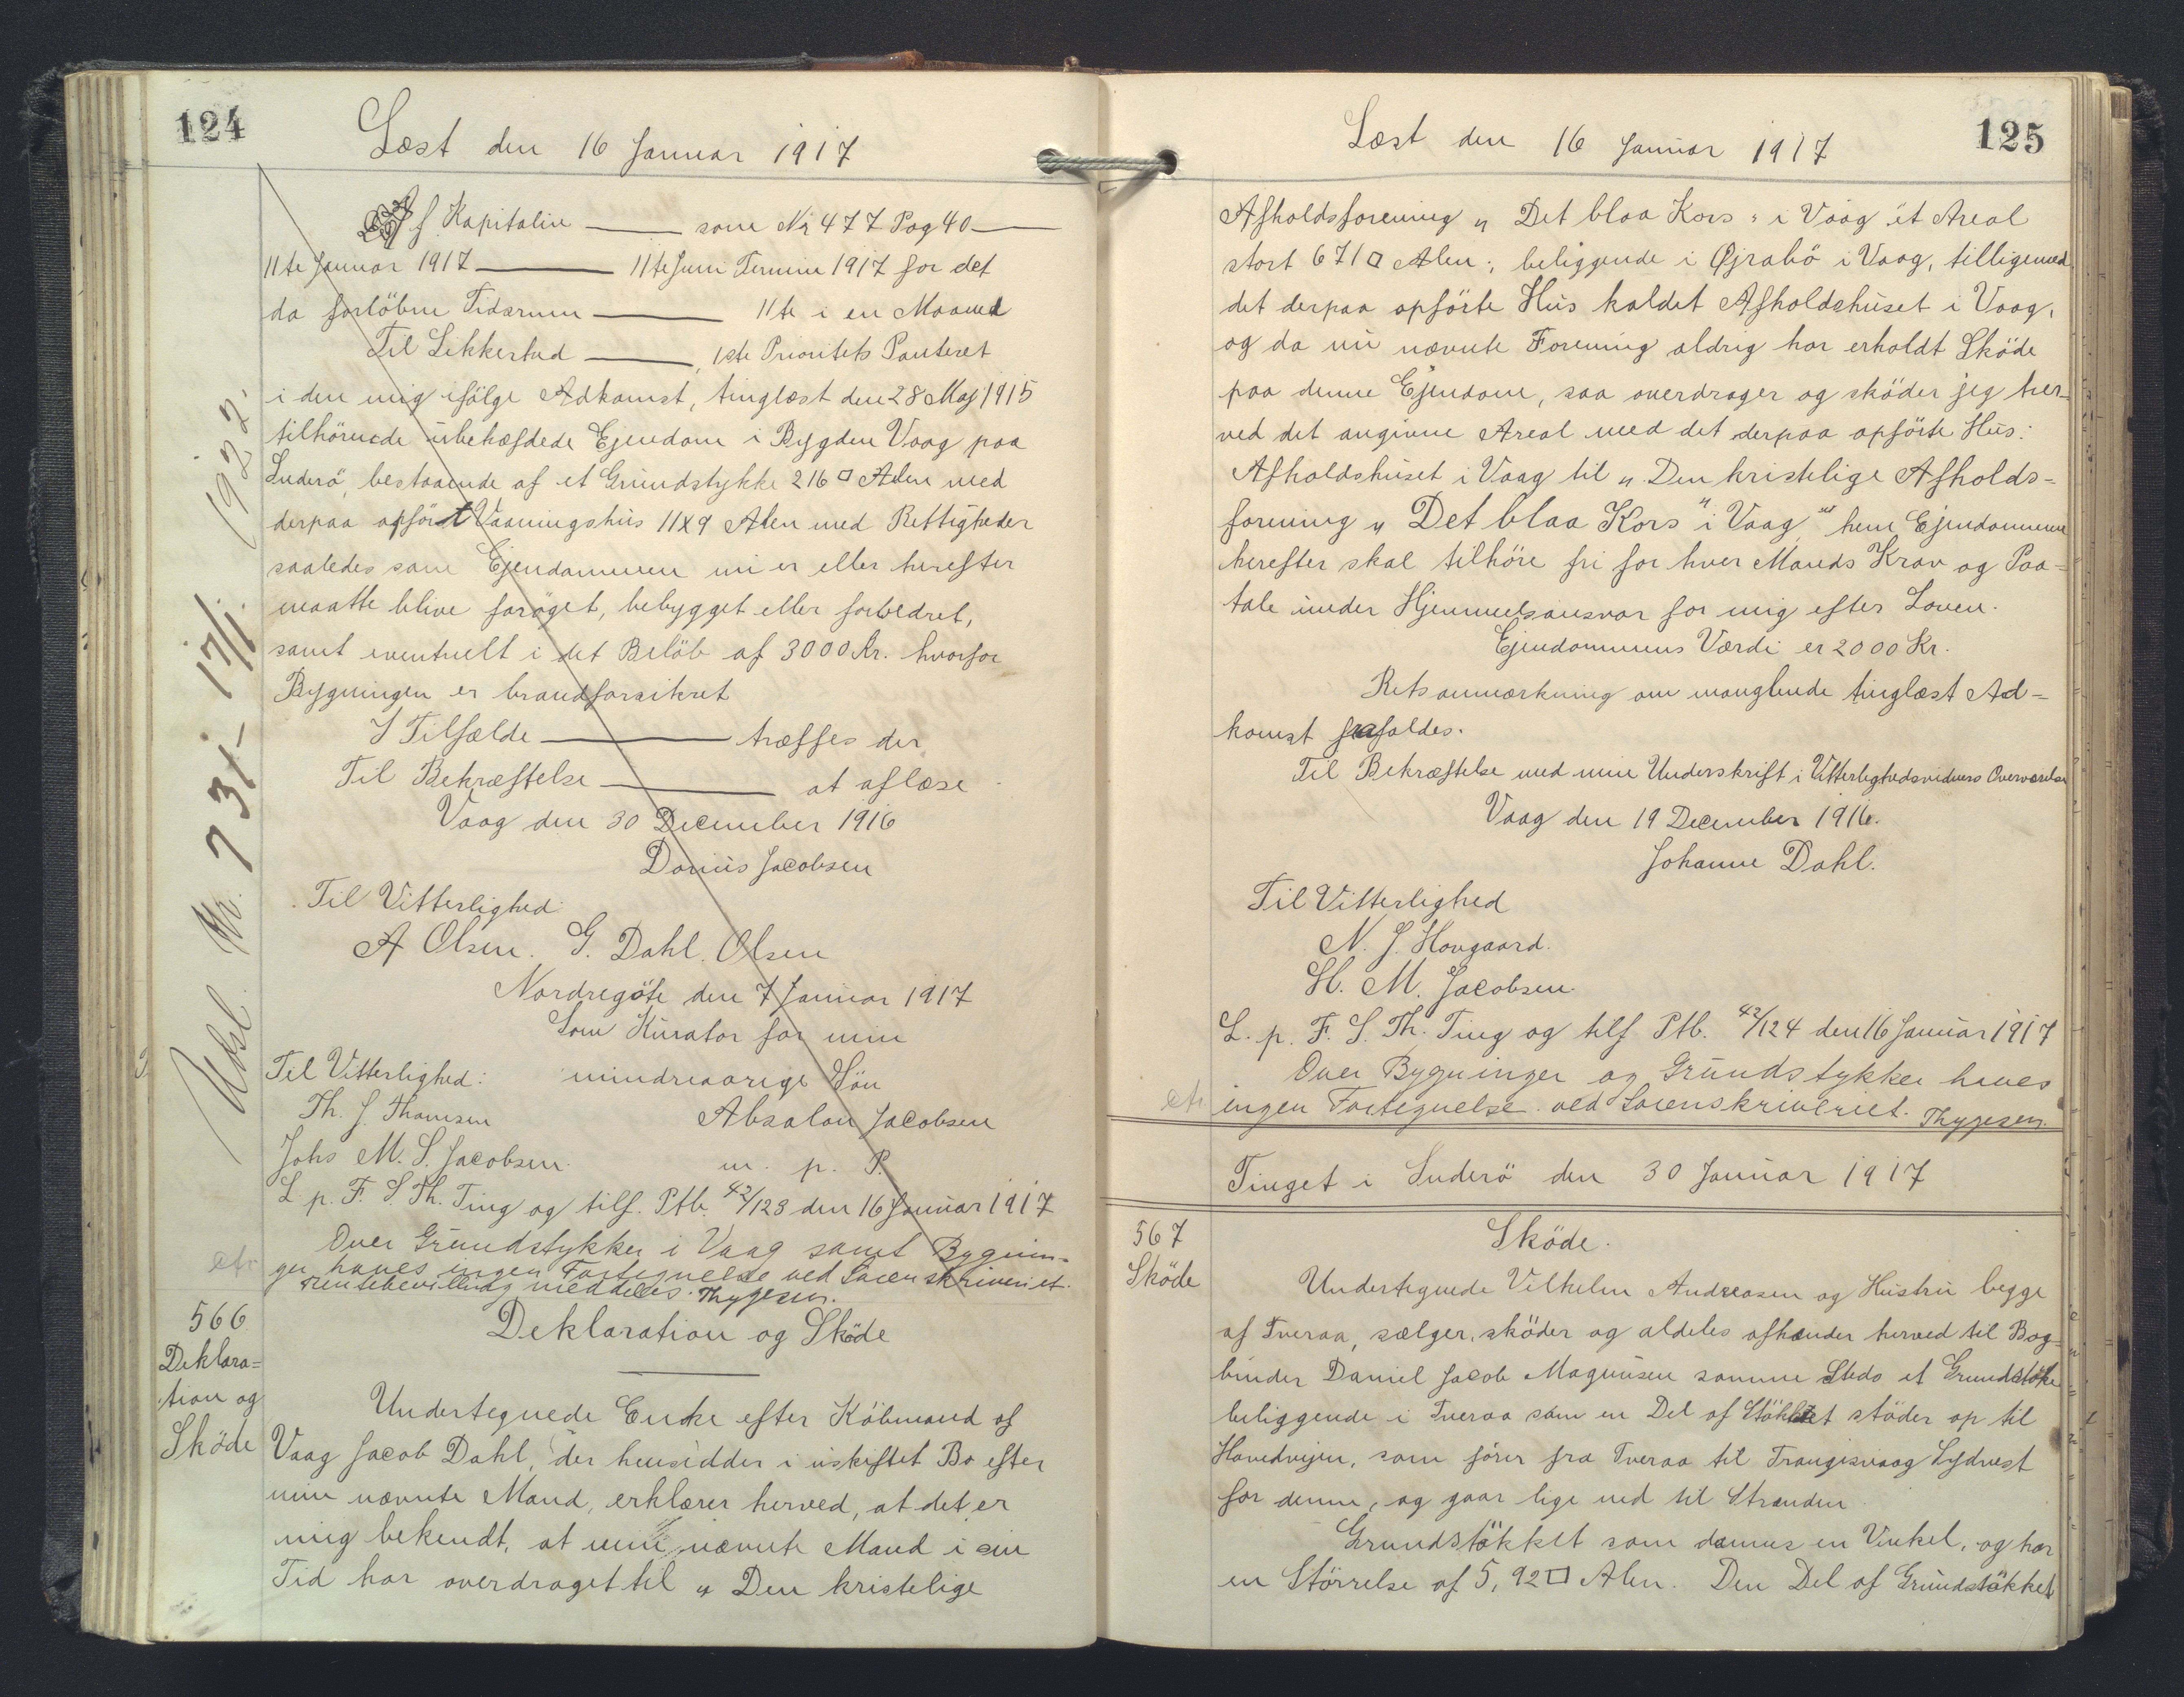 124
Læst den 16 Januar 1917
Af Kapitalen ——— som Nr 477 Pag 40 ———
11te Januar 1917 ——— 11te Juni Termin 1917 for det
da forløbne Tidsrum ——— 11te i en Maaned
Til Sikkerhed ——— 1ste Prioritets Panteret
i den mig ifølge Adkomst, tinglæst den 28 Maj 1915
tilhørende übehæftede Ejendom i Bygden Vaag paa
Suderö, bestaaende af et Grundstykke 216 □ Alen med
derpaa opført Vaaningshus 11x9 Alen med Rettigheder
saaledes som Ejendommen nu er eller herefter
maatte blive forøget, bebygget eller forbedret,
samt eventuelt i det Beløb af 3000 Kr. hvorfor
Bygningen er brandforsikret
I Tilfælde ——— træffes der
Til Bekræftelse ——— at aflæse
Vaag den 30 December 1916
Darius Jacobsen
Til Vitterlighed:
A Olsen. G. Dahl. Olsen
Nordregöte den 7 Januar 1917
Som Kurator for min
Til Vitterlighed: mindreaarige Søn
Th. J. Thomsen Absalon Jacobsen
Johs M. S. Jacobsen. m. p. P.
L. p. F. S. Th. Ting og tilf. Ptb. 42/123 den 16 Januar 1917
Over Grundstykker i Vaag samt Bygnin-
ger haves ingen Fortegnelse ved Sorenskriveriet.
Rentebevilling meddeles. Thygesen.
Udsl. Nr. 731- 17/1. 1922.
566
Deklara=
tion og
Sköde
Deklaration og Sköde
Undertegnede Enke efter Købmand af
Vaag Jacob Dahl, der hensidder i uskiftet Bo efter
min nævnte Mand, erklærer herved, at det er
mig bekendt, at min nævnte Mand i sin
Tid har overdraget til „ Den kristelige
125
Læst den 16 Januar 1917
Afholdsforening „ Det blaa Kors " i Vaag et Areal
stort 671 □ Alen, beliggende i Øjrabö i Vaag, tilligemed
det derpaa opførte Hus kaldet Afholdshuset i Vaag,
og da nu nævnte Forening aldrig har erholdt Sköde
paa denne Ejendom, saa overdrager og sköder jeg her-
ved det angivne Areal med det derpaa opførte Hus:
Afholdshuset i Vaag til „ Den kristelige Afholds=
forening „ Det blaa Kors " i Vaag hem Ejendommen
herefter skal tilhöre fri for hver Mands Krav og Paa=
tale under Hjemmelsansvar for mig efter Loven.
Ejendommens Værdi er 2000 Kr.
Retsanmærkning om manglende tinglæst Ad=
komst frafaldes.
Til Bekræftelse med min Underskrift i Vitterlighedsvidners Overværelse
Vaag den 19 December 1916.
Johanne Dahl.
Til Vitterlighed
N. J. Hovgaard.
H. M. Jacobsen.
L. p. F. S. Th. Ting og tilf Ptb. 42/124 den 16 Januar 1917
Over Bygninger og Grundstykker haves
ingen Fortegnelse ved Sorenskriveriet. Thygesen.
Tinget i Suderö den 30 Januar 1917
567
Sköde
Sköde.
Undertegnede Vilhelm Andreasen og Hustru begge
af Tveraa, sælger, sköder og aldeles afhænder herved til Bog-
binder Daniel Jacob Magnusen samme Steds et Grundstøkke
beliggende i Tveraa som en Del af Støkket støder op til
Hovedvejen, som fører fra Tveraa til Trangisvaag Sydvest
for denne, og gaar lige ned til Stranden
Grundstøkket som danner en Vinkel, og har
en Störrelse af 5,92 □ Alen. Den Del af Grundstøkket